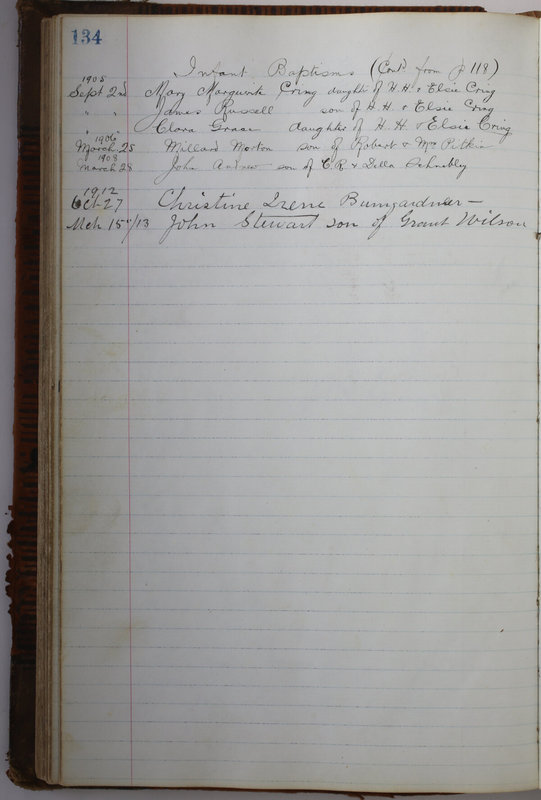 134
Infant Baptisms (Cont'd from p 118)
1905
Sept 2nd Mary Marguerite Cring daughter of H. H. & Elsie Cring
" " James Russell son of H. H. & Elsie Cring
" " Clara Grace daughter of H. H. & Elsie Cring
1906
March 25 Millard Morton son of Robert & Mrs Pitkin
1908
March 28 John Andrew son of C. R. & Della Schnebly
1912
Oct-27 Christine Irene Bumgardner —
Mch 15"/13 John Stewart son of Grant Wilson